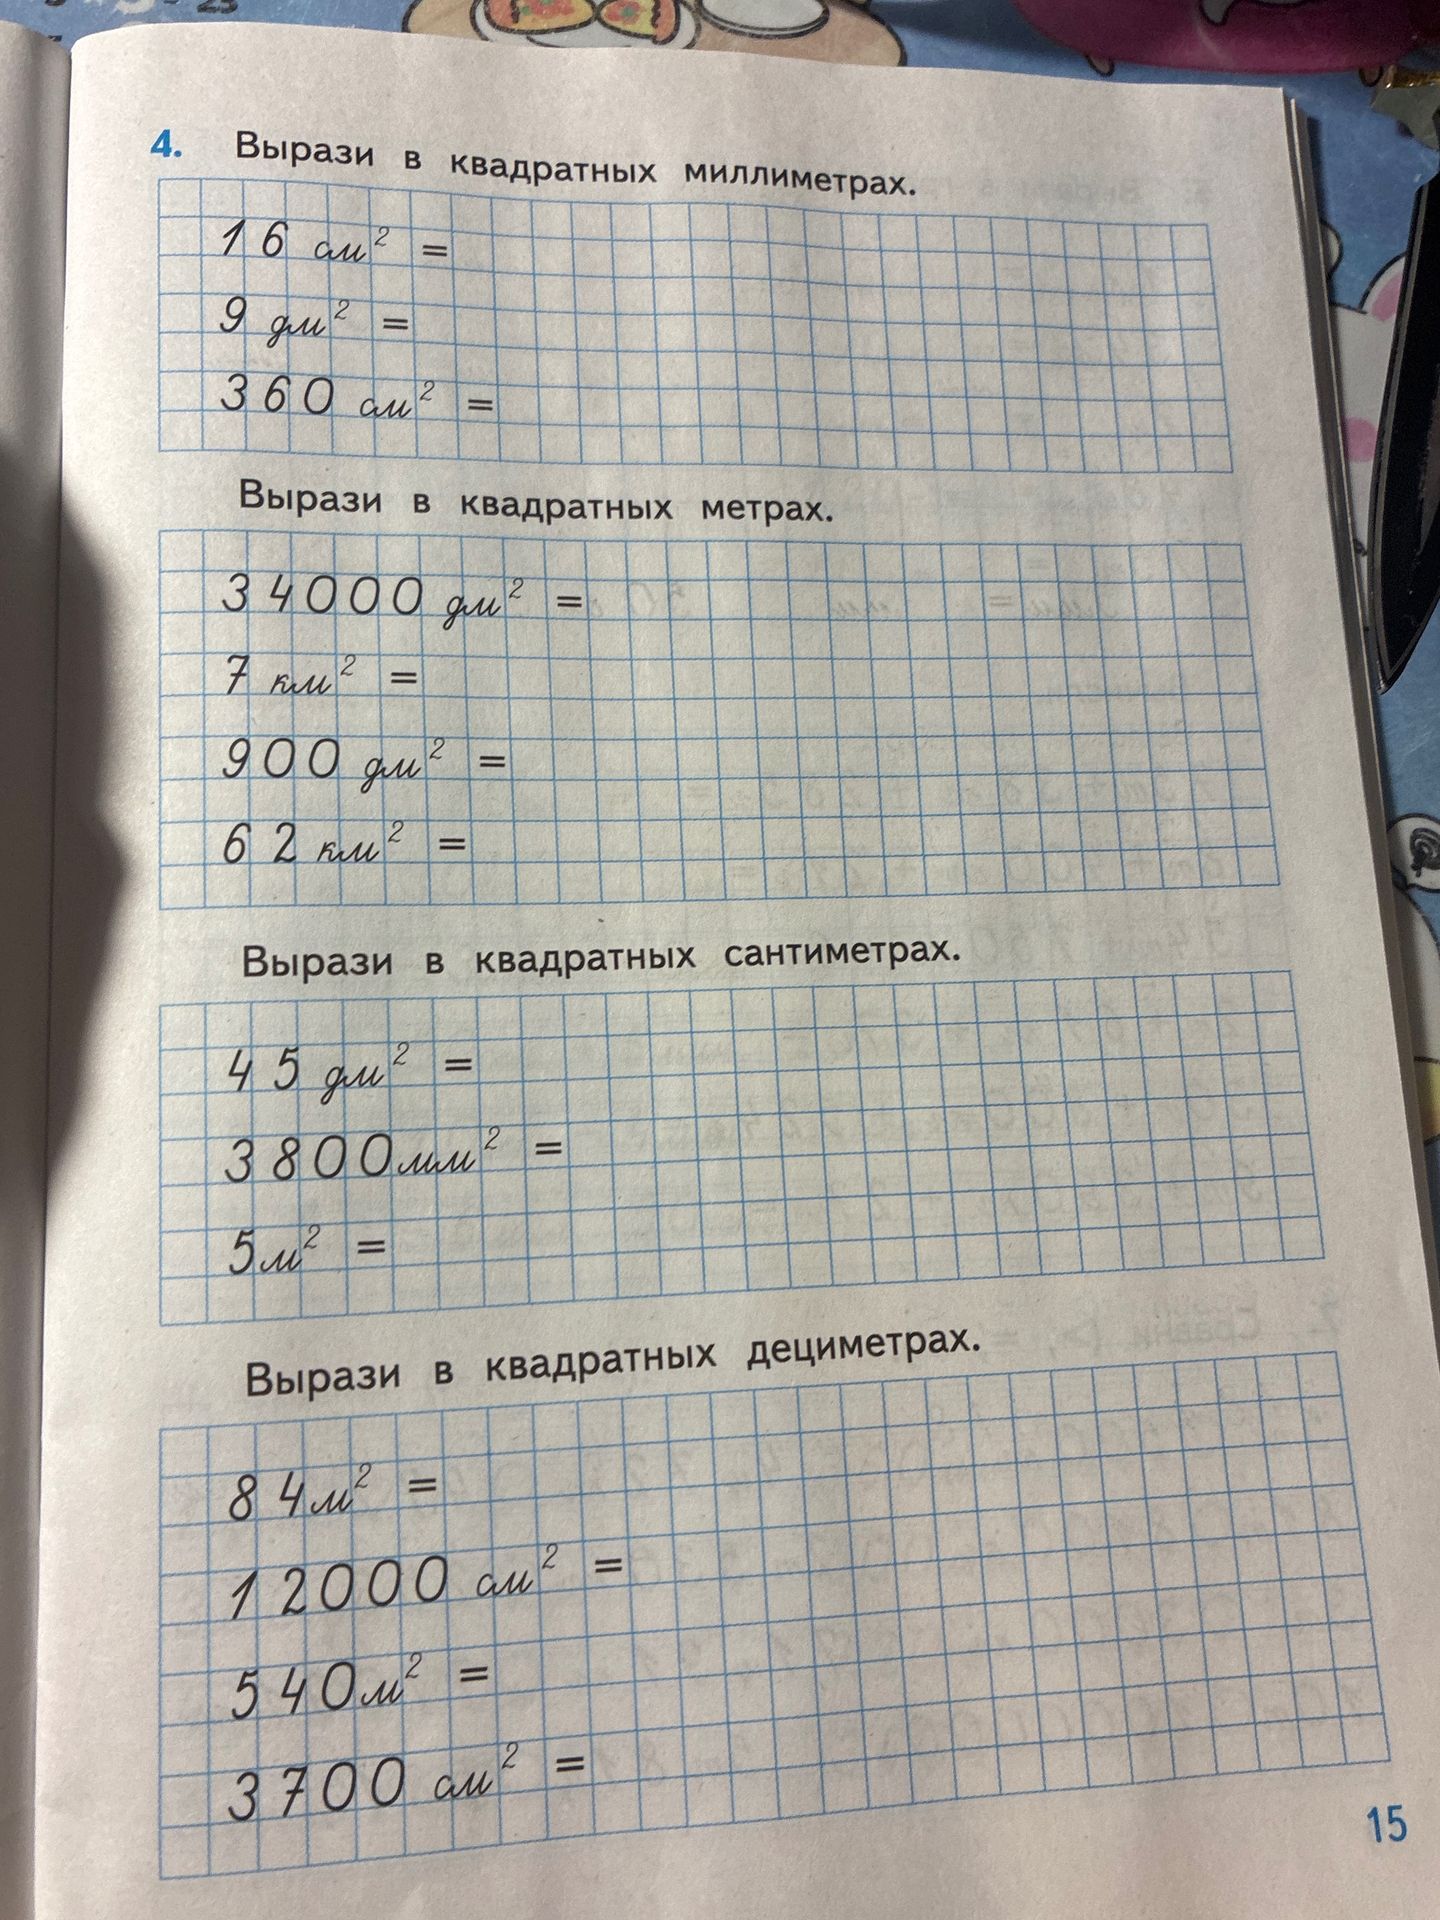 4. Вырази в квадратных миллиметрах.
16 см² =
9 дм² =
360 см² =
Вырази в квадратных метрах.
34000 дм² =
7 км² =
900 дм² =
62 км² =
Вырази в квадратных сантиметрах.
45 дм² =
3800 мм² =
5 м² =
Вырази в квадратных дециметрах.
84 м² =
12000 см² =
540 м² =
3700 см² =
15